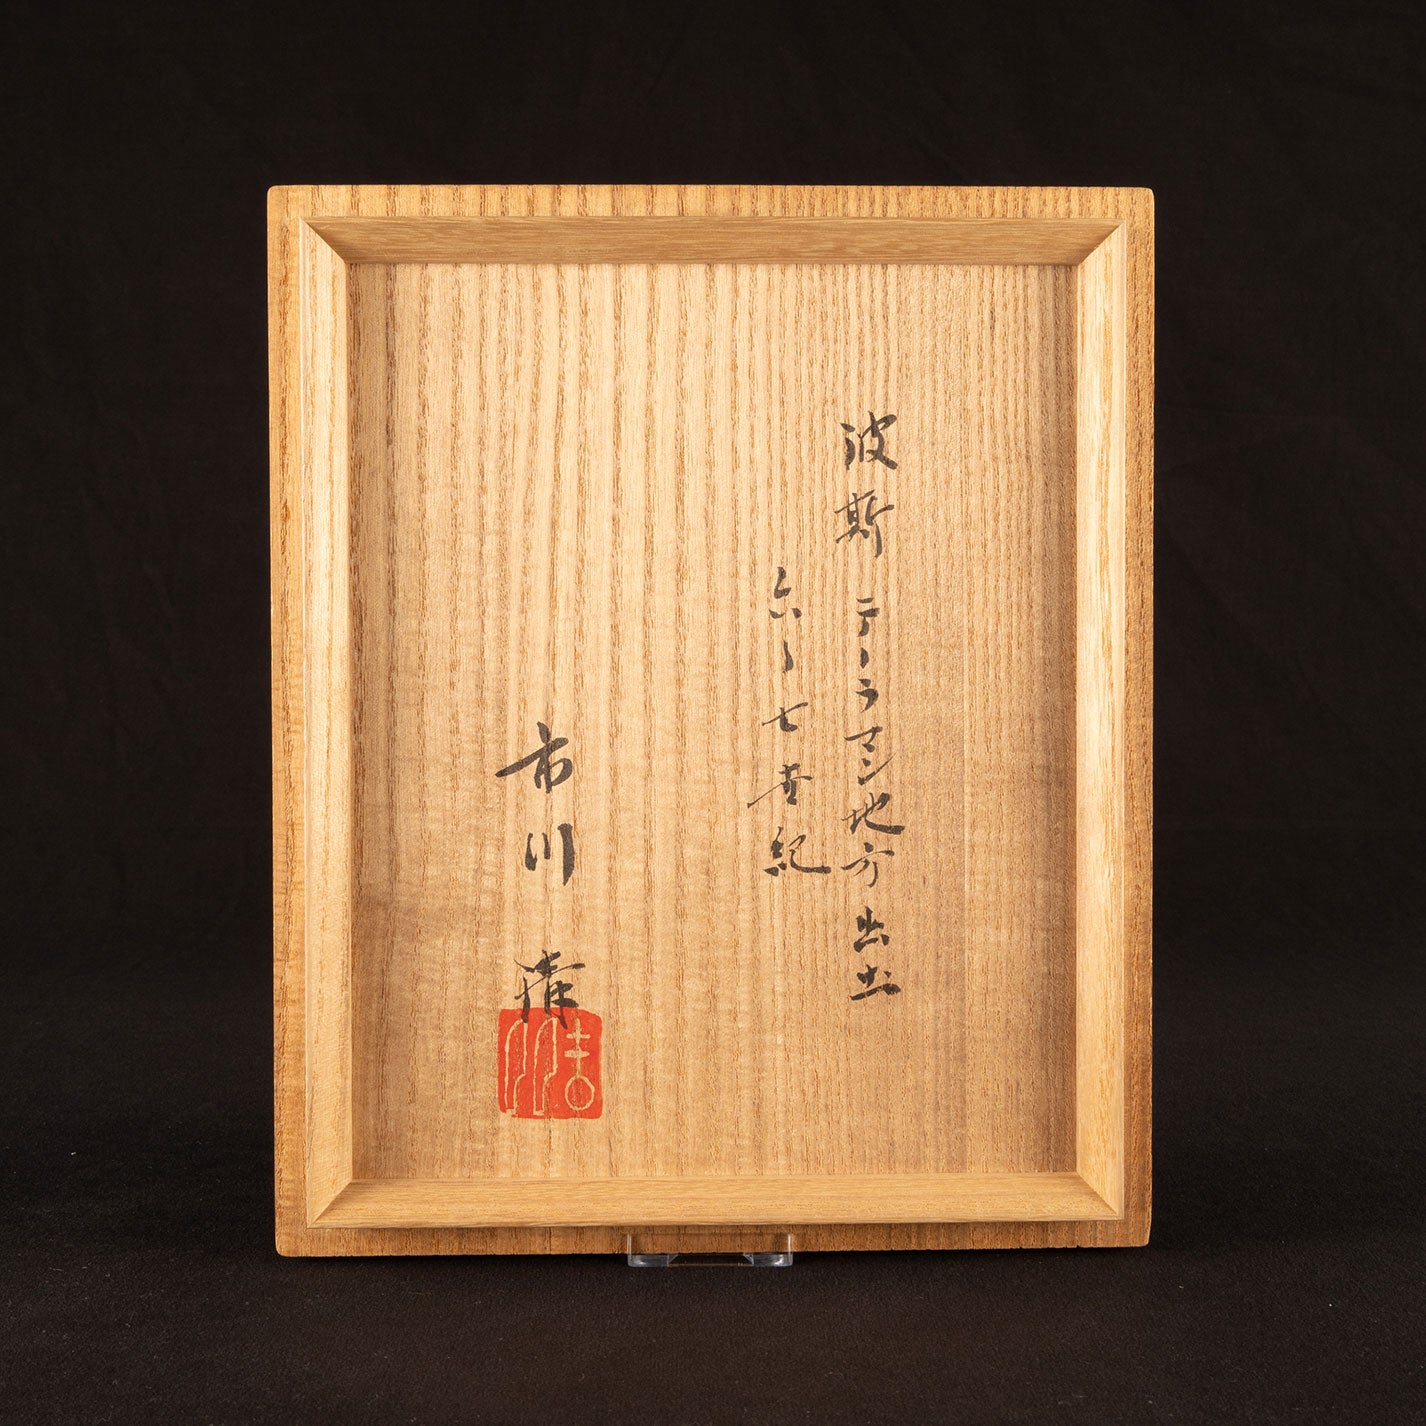 波斯 デーラマン地方出土
六〜七世紀
市川 清